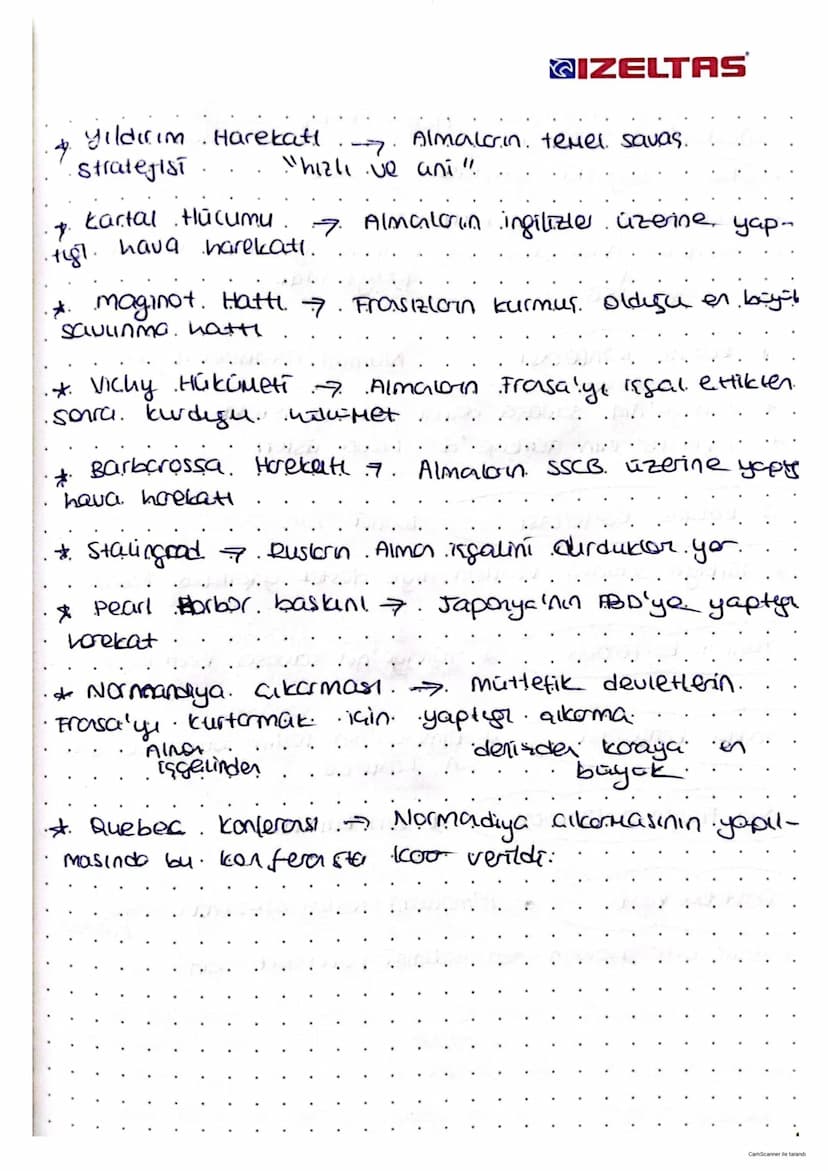 IZELTAS
* Yıldırım Harekatı → Almaların temel savaş
stratejisi "hızlı ve ani"
* Kartal Hücumu → Almaların ingilizler üzerine yap-
tığı hava harekatı.
* Maginot Hattı → Frasızların kurmuş olduğu en büyük
savunma hattı
* Vichy Hükümeti → Almaların Frasa'yı işgal ettikten
sonra kurduğu hükümet
* Barbarossa Harekatı → Almaların SSCB üzerine yaptığı
hava harekatı
* Stalingrad → Rusların Alman işgalini durdukları yer
* Pearl Harbor baskını → Japonya'nın ABD'ye yaptığı
harekat
* Normandiya Çıkarması → Müttefik devletlerin
Frasa'yı kurtarmak için yaptığı çıkarma
Alman denizden karaya en
işgalinden büyük
* Quebec Konferası → Normadiya çıkarmasının yapıl-
masında bu konferasta karar verildi.
CamScanner ile tarandı